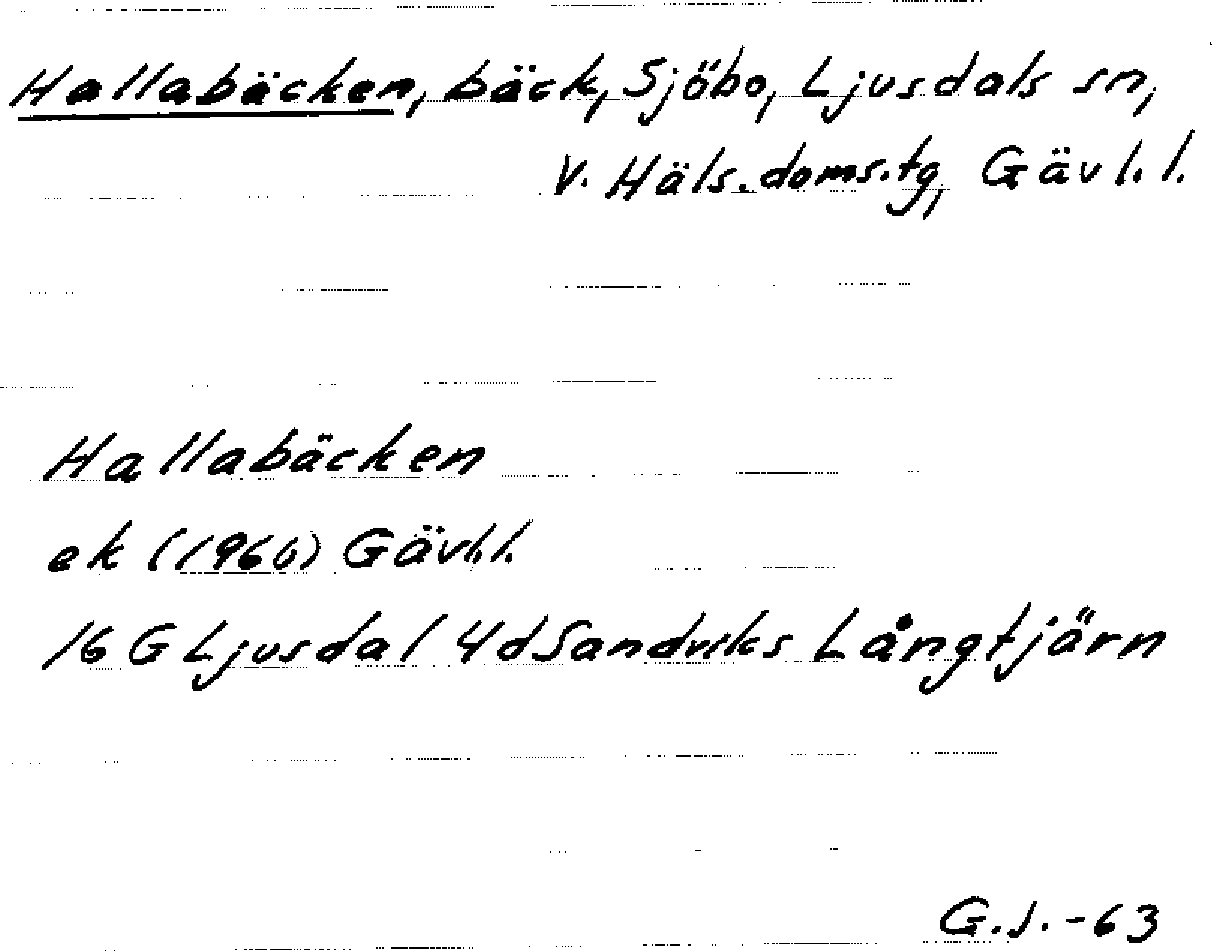 Hallabäcken, bäck, Sjöbo, Ljusdals sn,
V. Häls. doms.tg, Gävl. l.
Hallabäcken
ek (1960) Gävl.l.
16 G Ljusdal 4d Sandviks Långtjärn
G.J. -63